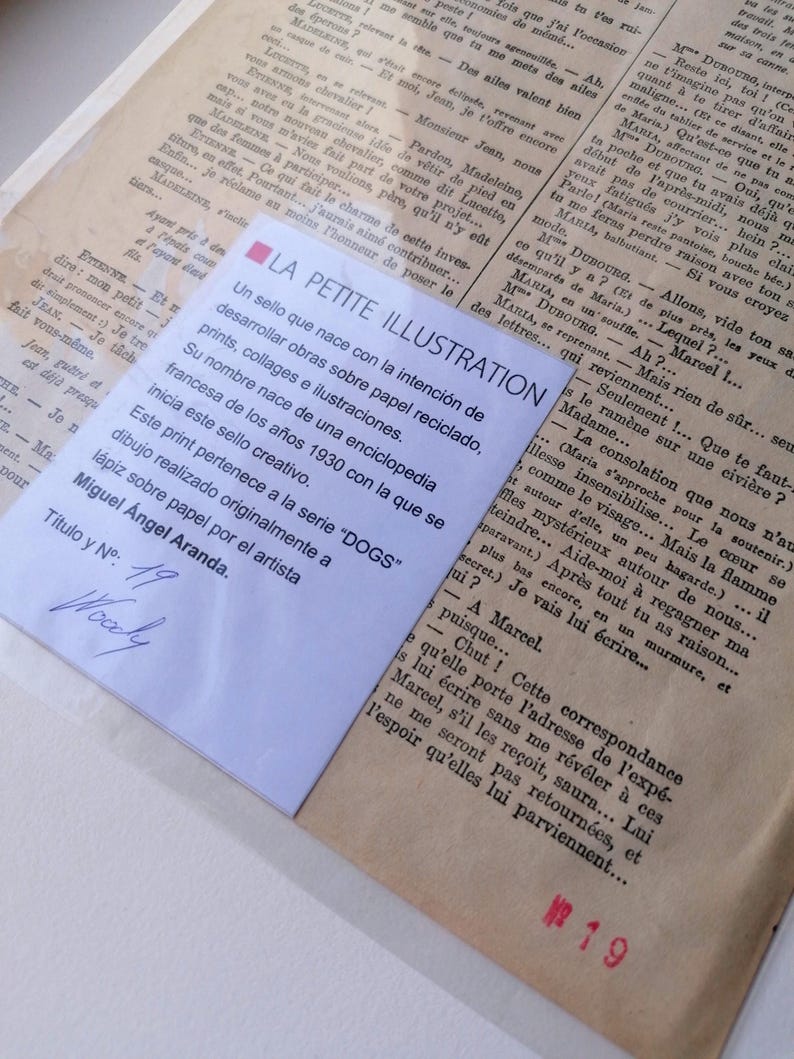 fois que j'ai l'occasion
LUCETTE, relevant la tête. — Des ailes valent bien
des éperons ?
MADELEINE, qui s'était encore éclipsée, revenant avec
un casque de cuir. — Et moi, Jean, je t'offre encore
ceci...
LUCETTE, en se relevant. — Monsieur Jean, nous
vous armons chevalier !
ETIENNE, intervenant alors. — Pardon, Madeleine,
vous avez eu la gracieuse idée de vêtir de pied en
cap... notre nouveau chevalier, comme dit Lucette,
mais si vous m'aviez fait part de votre projet...
MADELEINE. — Nous voulions, père, qu'il n'y eût
que des femmes à participer...
ETIENNE. — Ce qui fait le charme de cette inves-
titure, en effet. Pourtant... j'aurais aimé contribuer...
Enfin... je réclame au moins l'honneur de poser le
casque...
MADELEINE, s'inclin
tiers...
Ayant pris à deu
à l'épais couv
et l'ayant élevé
fils.
ETIENNE. — Et m
dire : mon petit — J
droit prononcer encore qu
dit simplement :) Je tre
JEAN. — Je tâch
fait vous-même.
Jean, guéré et
est déjà presqu
— Je n
— Ma
pour
travail. M
des trois fen
maison, en a
sur sa canne.
Mme DUBOURG, interp
— Reste ici, toi ! (Ce
ne t'imagine pas qu'on
quant à te tirer d'affair
maligne... (Et ce disant, elle
enfle du tablier de service et le
de Maria.) Qu'est-ce que tu a
MARIA, affectant de ne pas com
Mme DUBOURG. — Oui, qu'e
ta poche et que tu avais déjà q
début de l'après-midi, nous m
avait pas de courrier... hein ?...
yeux fatigués j'y vois plus clair
Parle ! (Maria reste pantoise, bouche bée.)
tu me feras perdre raison avec ton s
MARIA, balbutiant. — Si vous croyez
mode.
Mme DUBOURG. — Allons, vide ton sa
ce qu'il y a ? (Et de plus près, les yeux d
désemparés de Maria.) ... Lequel ?...
MARIA, en un souffle. — Marcel !...
Mme DUBOURG. — Ah ?...
MARIA, se reprenant. — Mais rien de sûr... seu
des lettres... qui reviennent...
— Seulement !... Que te faut-
s le ramène sur une civière ?
Madame...
— La consolation que nous n'au
... (Maria s'approche pour la soutenir.)
llesse insensibilise... Le cœur se
, comme le visage... Mais la flamme
nt autour d'elle, un peu hagarde.) ... il
ffles mystérieux autour de nous...
teindre... Aide-moi à regagner ma
paravant.) Après tout tu as raison...
plus bas encore, en un murmure, et
secret.) Je vais lui écrire...
ui ?
— A Marcel.
s puisque...
— Chut ! Cette correspondance
e qu'elle porte l'adresse de l'expé-
s lui écrire sans me révéler à ces
Marcel, s'il les reçoit, saura... Lui
ne me seront pas retournées, et
l'espoir qu'elles lui parviennent...
Nº 19
LA PETITE ILLUSTRATION
Un sello que nace con la intención de
desarrollar obras sobre papel reciclado,
prints, collages e ilustraciones.
Su nombre nace de una enciclopedia
francesa de los años 1930 con la que se
inicia este sello creativo.
Este print pertenece a la serie "DOGS"
dibujo realizado originalmente a
lápiz sobre papel por el artista
Miguel Ángel Aranda.
Título y Nº: 19
Woody